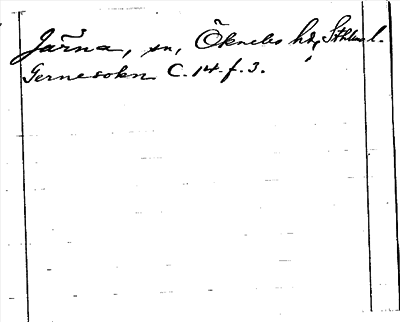 Järna, sn, Öknebo hd, Sthlms l.
Gernesokn C. 14. f. 3.